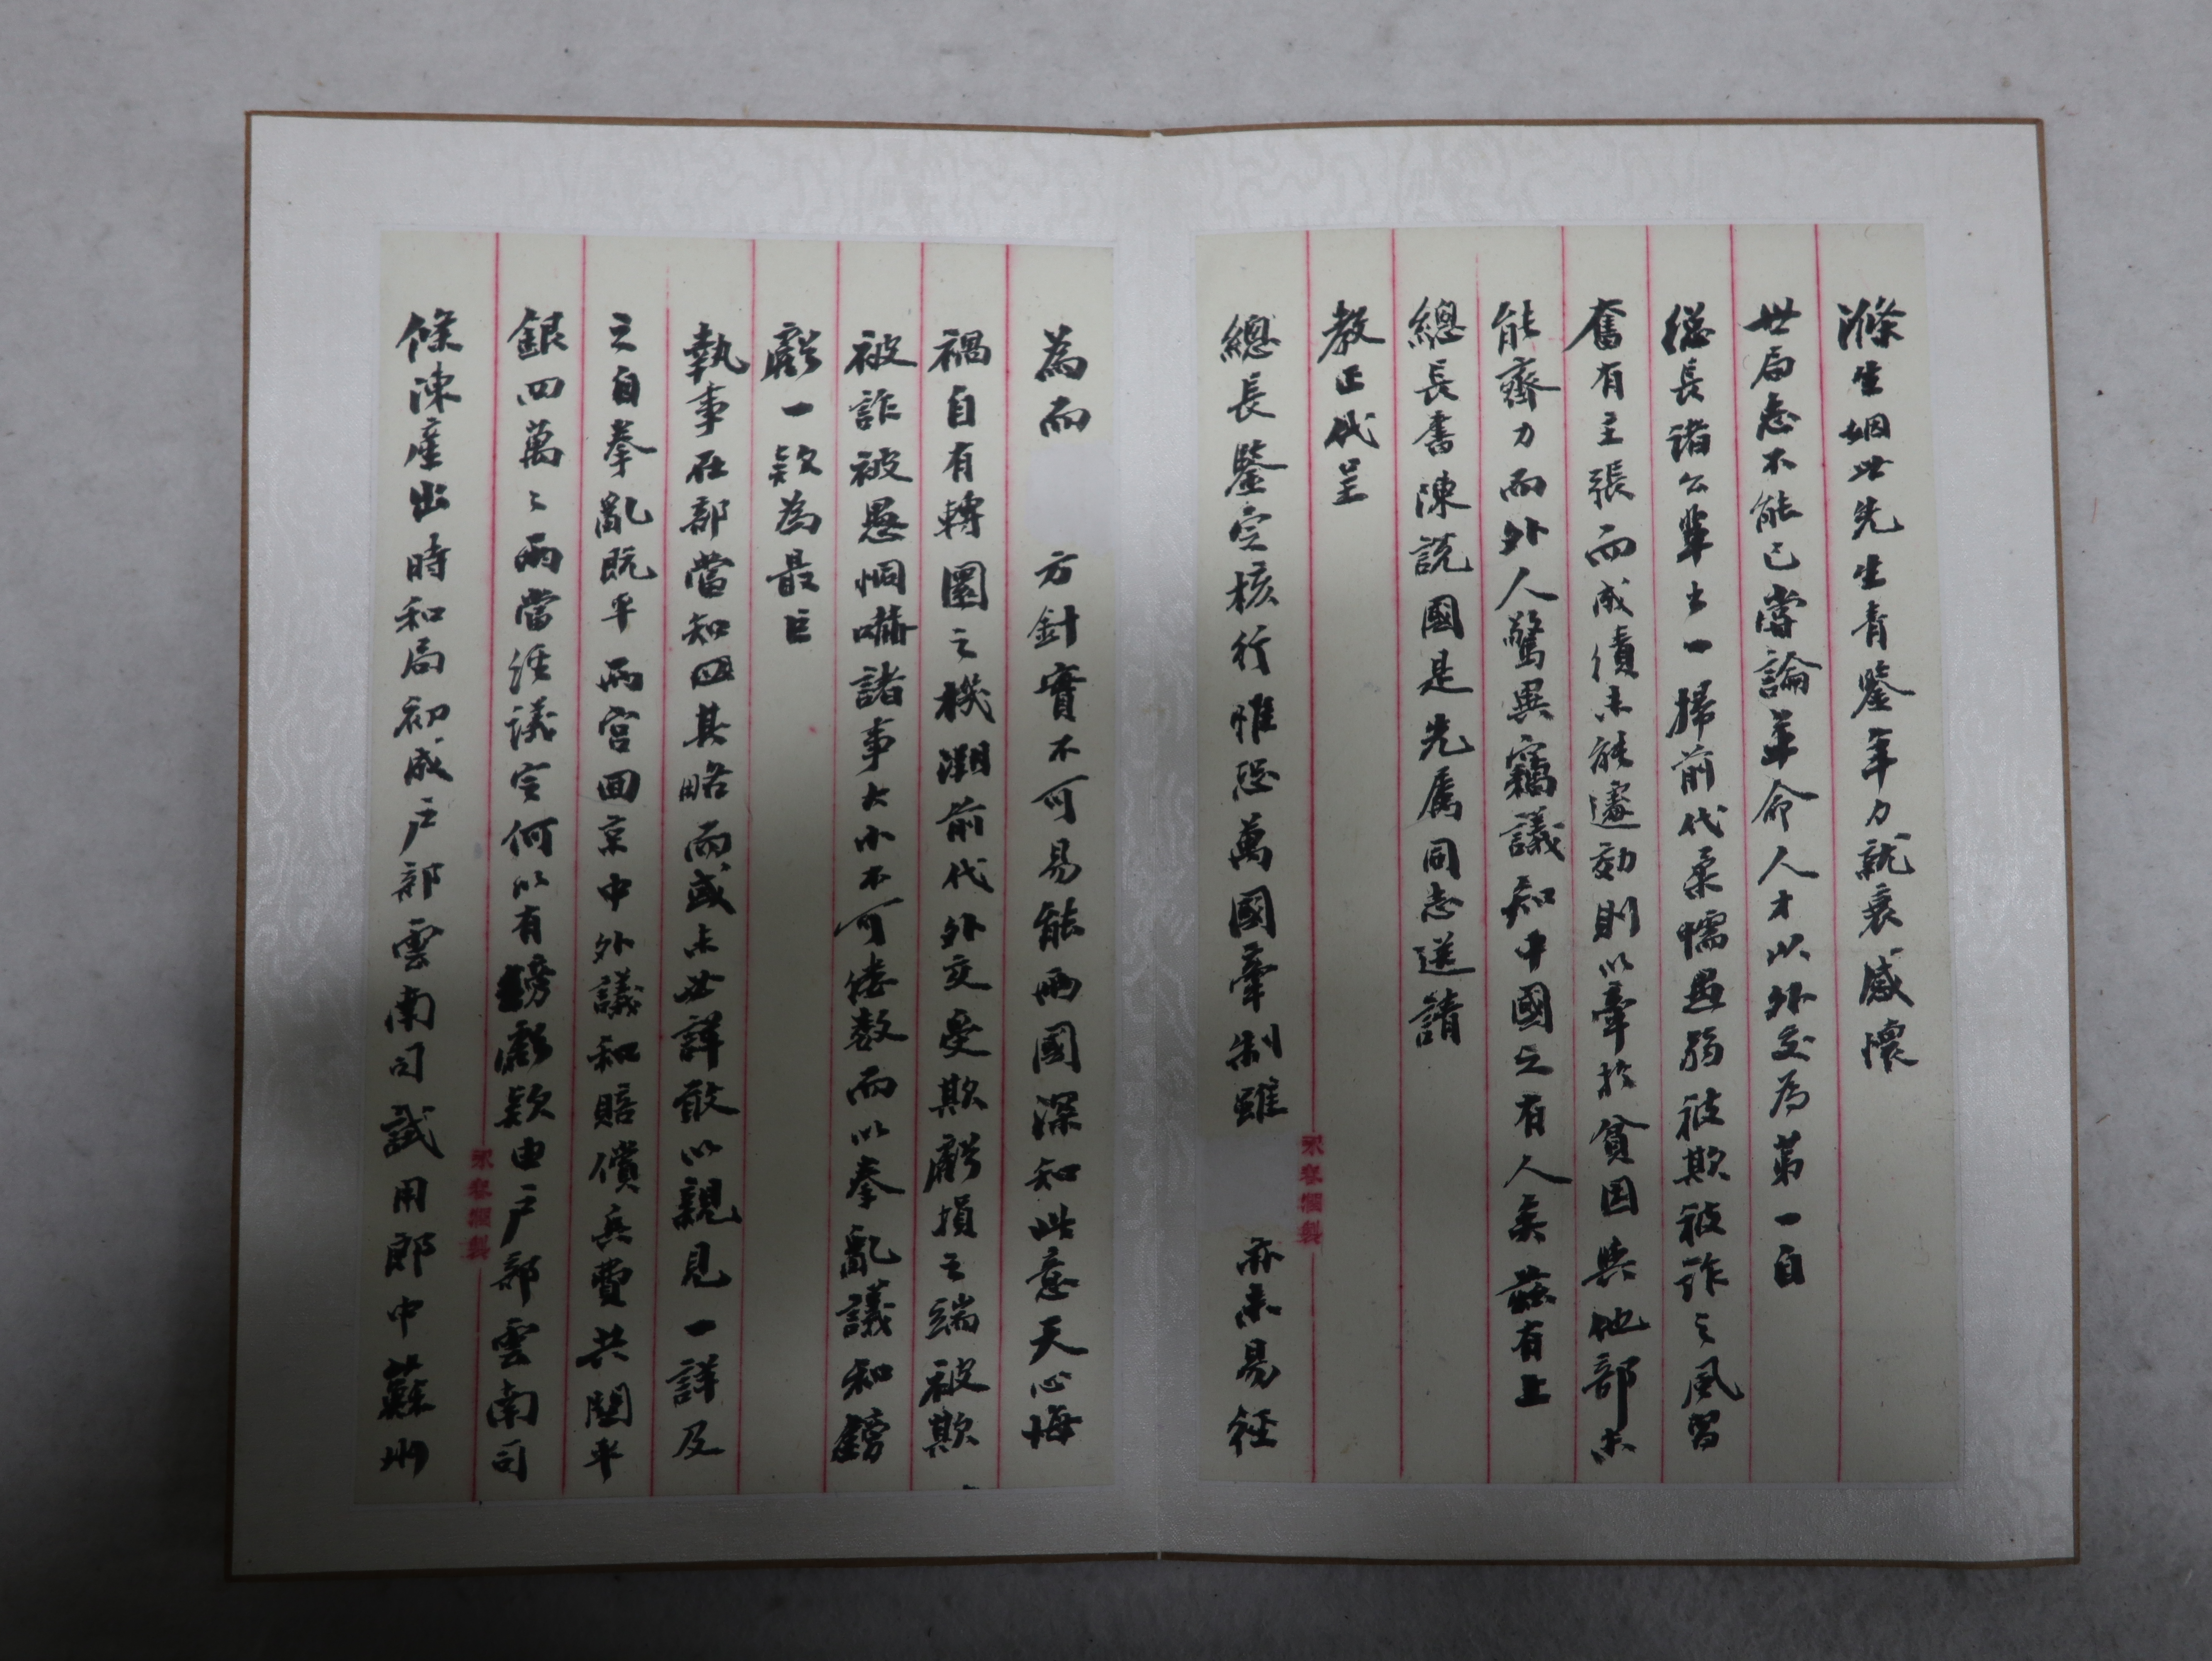 滌生姻世先生青鑒年力就衰感懷
世局惄不能已嘗論革命人才以外交為第一自
總長諸公輩出一掃前代柔懦愚弱被欺被詐之風習
奮有主張而成績未能遽効則以牽於貧因與他部未
能齊力而外人驚異竊議知中國之有人矣茲有上
總長書陳説國是先屬同志送請
教正代呈
總長鑒定核行惟恐萬國牽制雖 亦未易徑
為而 方針實不可易能兩國深知此意天心悔
禍自有轉圜之機溯前代外交受欺虧損之端被欺
被詐被愚恫嚇諸事大小不可僂數而以拳亂議和鎊
虧一欵為最巨
執事在部當知四其略而或未世詳敢以親見一詳及
之自拳亂既平兩宮回京中外議和賠償兵費共關平
銀四萬之兩當經議定何以有鎊虧欵由戶部雲南司
條陳產出時和局初成戶部雲南司試用郎中蘇州
永春潤製
永春潤製